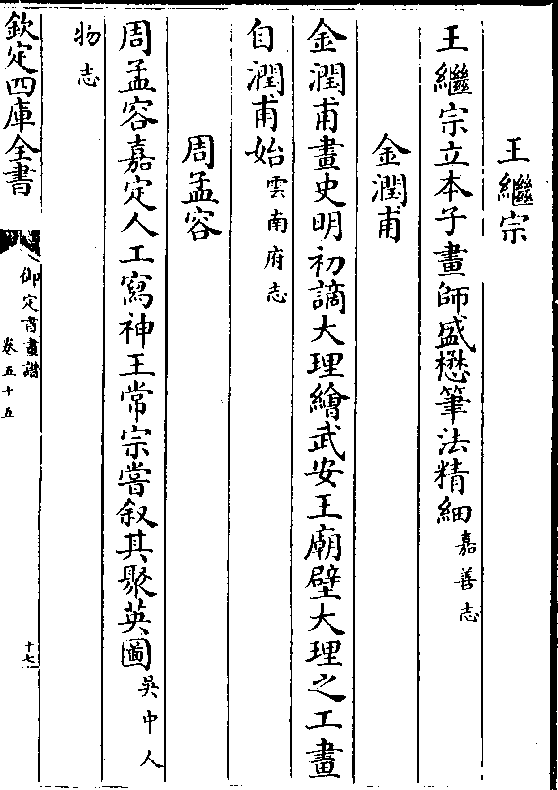 王繼宗
王繼宗立本子畫師盛懋筆法精細嘉善志
金潤甫
金潤甫畫史明初謫大理繪武安王廟壁大理之工畫
自潤甫始雲南府志
周孟容
周孟容嘉定人工寫神王常宗嘗叙其聚英圖吳中人
物志
欽定四庫全書
御定書畫譜
卷五十五
十七